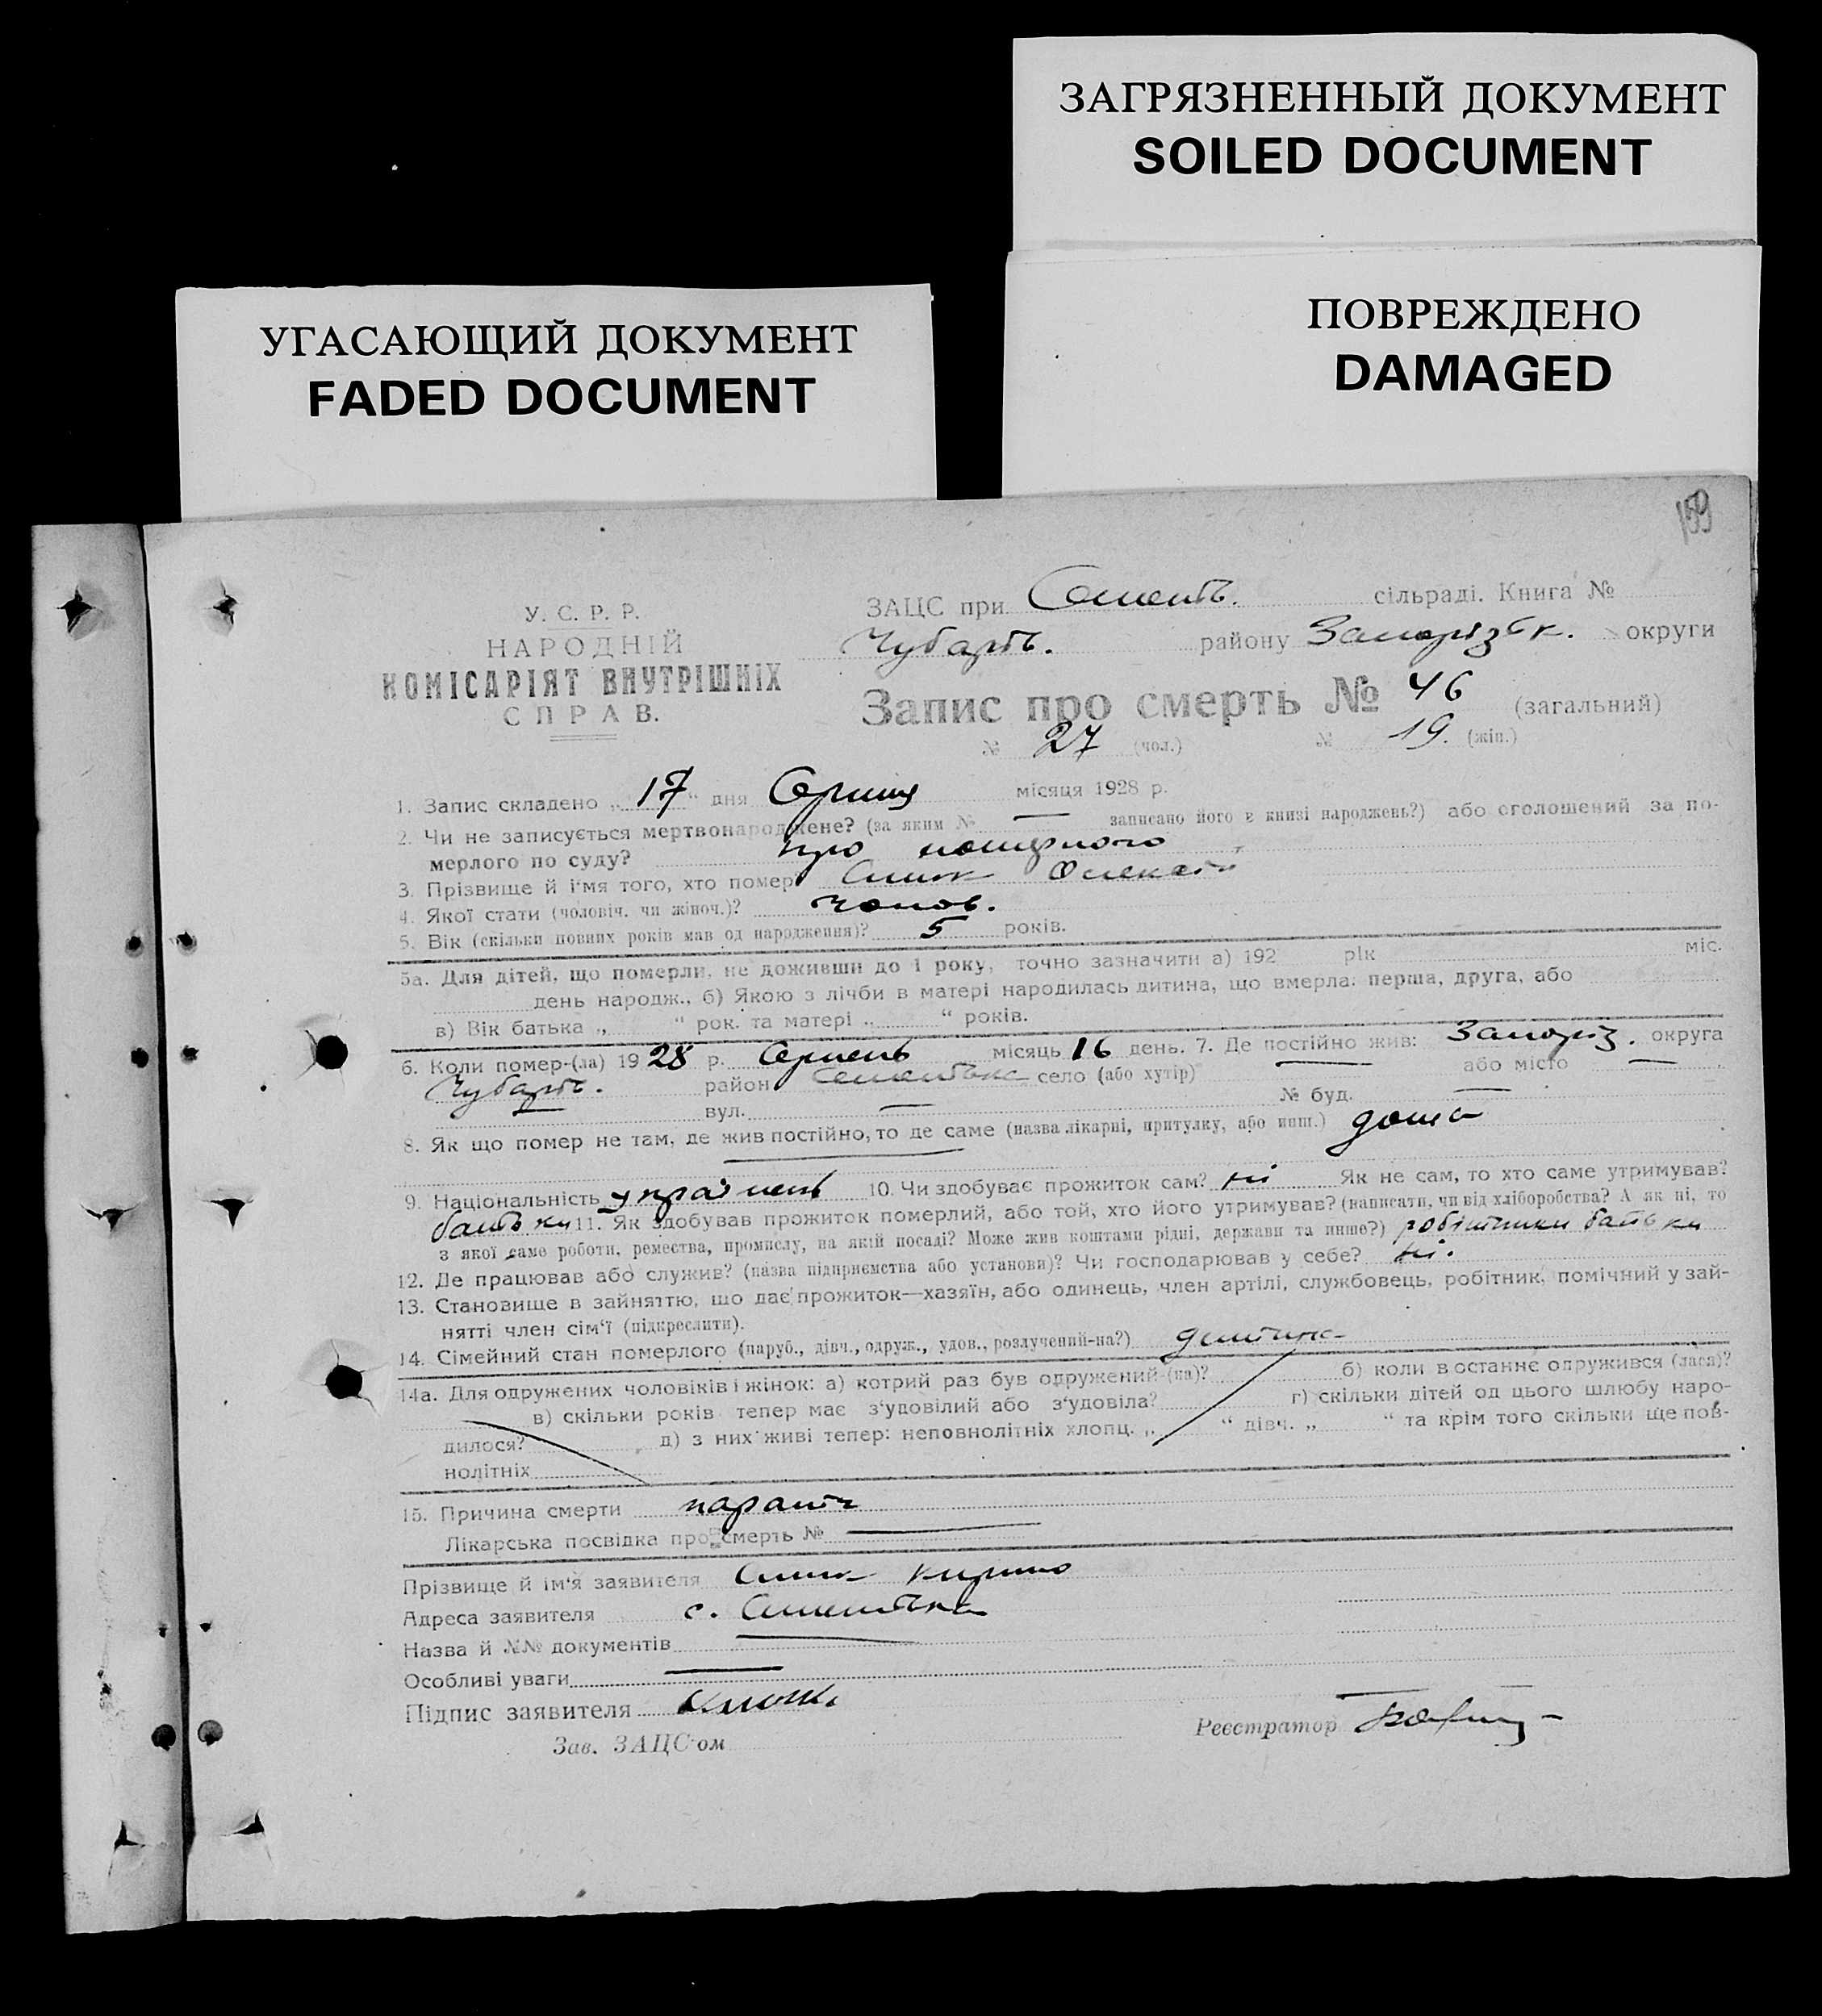 ЗАГРЯЗНЕННЫЙ ДОКУМЕНТ
SOILED DOCUMENT
ПОВРЕЖДЕНО
DAMAGED
УГАСАЮЩИЙ ДОКУМЕНТ
FADED DOCUMENT
159
У. С. Р. Р.
НАРОДНІЙ
КОМІСАРІЯТ ВНУТРІШНІХ
СПРАВ.
ЗАЦС при сільраді. Книга №
Чубарів. району Запорізьк. округи
Запис про смерть № 46 (загальний)
№ 27 (чол.) № 19. (жін.)
1. Запис складено „ 17 “ дня Серпня місяця 1928 р.
2. Чи не записується мертвонароджене? (за яким № — записано його в книзі народжень?) або оголошений за по-
мерлого по суду? про померлого
3. Прізвище й ім'я того, хто помер
4. Якої стати (чоловіч. чи жіноч.)? чолов.
5. Вік (скільки повних років мав од народження)? 5 років.
5а. Для дітей, що померли, не доживши до 1 року, точно зазначити а) 192 рік міс.
день народж., б) Якою з лічби в матері народилась дитина, що вмерла: перша, друга, або
в) Вік батька „ “ рок. та матері „ “ років.
6. Коли помер-(ла) 1928 р. Серпень місяць 16 день. 7. Де постійно жив: Запоріз. округа
Чубарів. район село (або хутір) — або місто —
вул. — № буд. —
8. Як що помер не там, де жив постійно, то де саме (назва лікарні, притулку, або инш.) дома
9. Національність українець 10. Чи здобуває прожиток сам? ні Як не сам, то хто саме утримував?
батьки 11. Як здобував прожиток померлий, або той, хто його утримував? (написати, чи від хліборобства? А як ні, то
з якої саме роботи, ремества, промислу, на якій посаді? Може жив коштами рідні, держави та инше?) робітники батьки
12. Де працював або служив? (назва підприємства або установи)? Чи господарював у себе? ні.
13. Становище в зайняттю, що дає прожиток—хазяїн, або одинець, член артілі, службовець, робітник, помічний у зай-
нятті член сім'ї (підкреслити).
14. Сімейний стан померлого (паруб., дівч., одруж., удов., розлучений-на?) дитина
14а. Для одружених чоловіків і жінок: а) котрий раз був одружений-(на)? б) коли в останнє одружився (лася)?
в) скільки років тепер має з'удовілий або з'удовіла? г) скільки дітей од цього шлюбу наро-
дилося? д) з них живі тепер: неповнолітніх хлопц. „ “ дівч. „ “ та крім того скільки ще пов-
нолітніх
15. Причина смерти
Лікарська посвідка про смерть № —
Прізвище й ім'я заявителя
Адреса заявителя с.
Назва й №№ документів —
Особливі уваги —
Підпис заявителя
Зав. ЗАЦС'ом Реєстратор